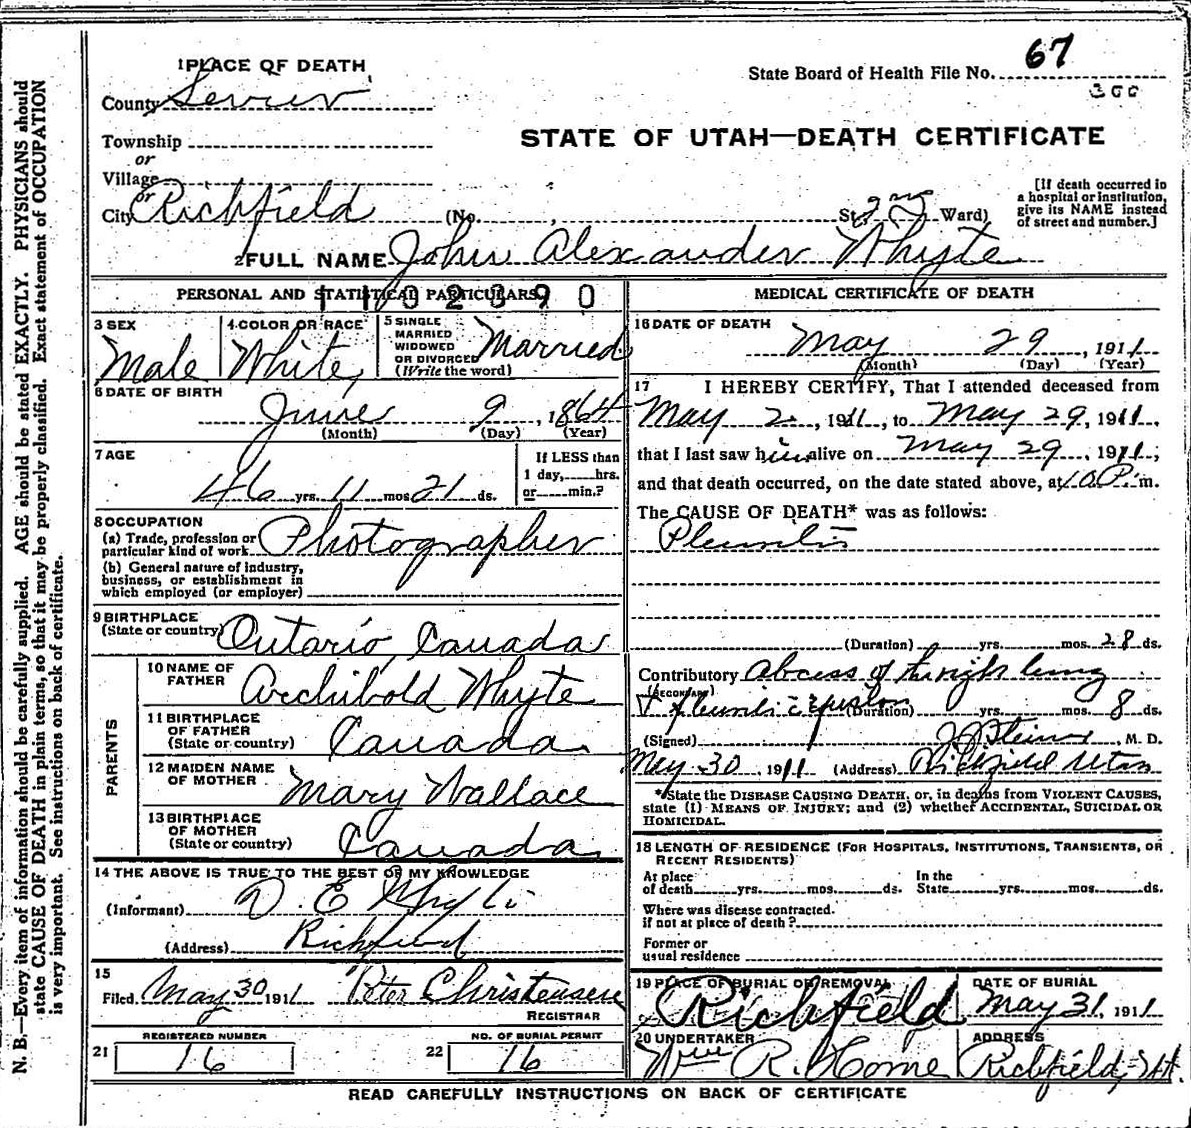 N. B.—Every item of information should be carefully supplied. AGE should be stated EXACTLY. PHYSICIANS should
state CAUSE OF DEATH in plain terms, so that it may be properly classified. Exact statement of OCCUPATION
is very important. See instructions on back of certificate.
1 PLACE OF DEATH
State Board of Health File No. 67
300
County Sevier
STATE OF UTAH—DEATH CERTIFICATE
Township
or
Village
or
City Richfield (No. , St. 2nd Ward)
[If death occurred in
a hospital or institution,
give its NAME instead
of street and number.]
2 FULL NAME John Alexander Whyte
PERSONAL AND STATISTICAL PARTICULARS
1102390
3 SEX Male
4 COLOR OR RACE White
5 SINGLE
MARRIED
WIDOWED
OR DIVORCED
(Write the word) Married
6 DATE OF BIRTH
June 9, 1864
(Month) (Day) (Year)
7 AGE
46 yrs. 11 mos 21 ds.
If LESS than
1 day, hrs.
or min.?
8 OCCUPATION
(a) Trade, profession or
particular kind of work Photographer
(b) General nature of industry,
business, or establishment in
which employed (or employer)
9 BIRTHPLACE
(State or country) Ontario Canada
PARENTS
10 NAME OF
FATHER Archibold Whyte
11 BIRTHPLACE
OF FATHER
(State or country) Canada
12 MAIDEN NAME
OF MOTHER Mary Wallace
13 BIRTHPLACE
OF MOTHER
(State or country) Canada
14 THE ABOVE IS TRUE TO THE BEST OF MY KNOWLEDGE
(Informant) D. E.
(Address) Richfield
15
Filed May 30 1911 Peter Christensen
REGISTRAR
REGISTERED NUMBER
21 16
NO. OF BURIAL PERMIT
22 16
MEDICAL CERTIFICATE OF DEATH
16 DATE OF DEATH
May 29, 1911
(Month) (Day) (Year)
17 I HEREBY CERTIFY, That I attended deceased from
May 2, 1911, to May 29, 1911,
that I last saw him alive on May 29, 1911;
and that death occurred, on the date stated above, at P. m.
The CAUSE OF DEATH* was as follows:
Pleuritis
(Duration) yrs. mos. 28 ds.
Contributory Abcess of the right lung
(SECONDARY)
(Duration) yrs. mos. 8 ds.
(Signed) , M. D.
May 30, 1911 (Address) Richfield Utah
*State the DISEASE CAUSING DEATH, or, in deaths from VIOLENT CAUSES,
state (1) MEANS OF INJURY; and (2) whether ACCIDENTAL, SUICIDAL OR
HOMICIDAL.
18 LENGTH OF RESIDENCE (FOR HOSPITALS, INSTITUTIONS, TRANSIENTS, OR
RECENT RESIDENTS)
At place
of death yrs. mos. ds.
In the
State yrs. mos. ds.
Where was disease contracted.
if not at place of death?
Former or
usual residence
19 PLACE OF BURIAL OR REMOVAL
Richfield
DATE OF BURIAL
May 31, 1911
20 UNDERTAKER
Wm R. Horne
ADDRESS
Richfield, Ut.
READ CAREFULLY INSTRUCTIONS ON BACK OF CERTIFICATE